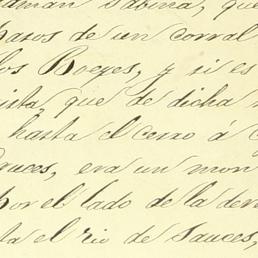 llaman Sabina, que
pasos de un corral
los Bueyes, y si es
ista, que de dicha
hasta el cerro á
ruces, era un mon
por el lado de la dere
ta el rio de Sauces,